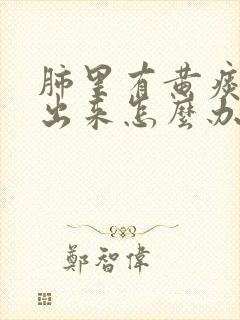 肺里有黄痰
出来怎麼办
鄭智偉